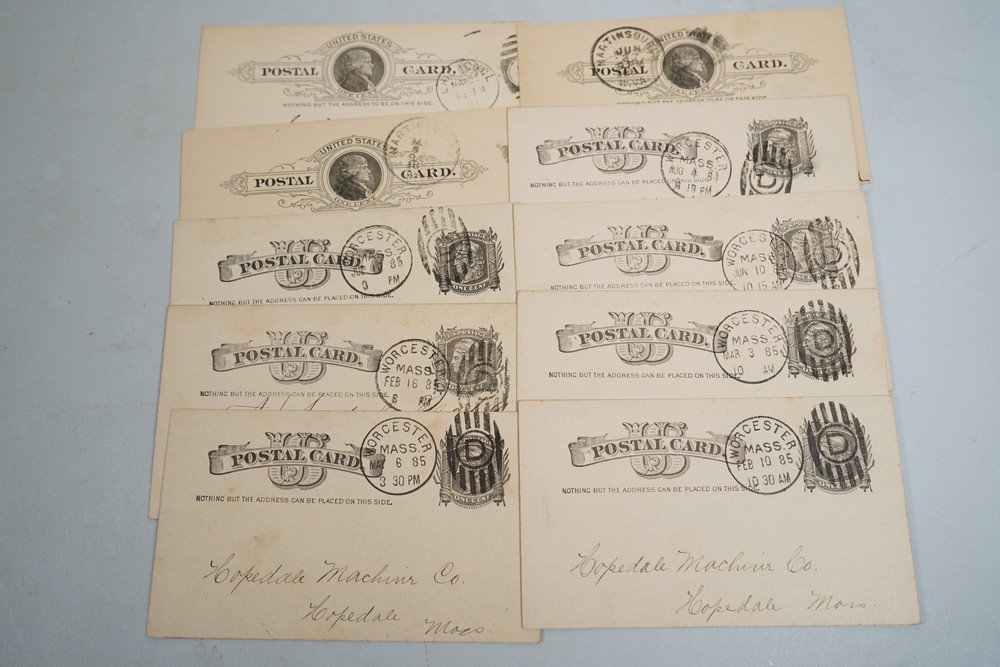 UNITED STATES
POSTAL CARD.
NOTHING BUT THE ADDRESS TO BE ON THIS SIDE.
MARTINSBURG
JUN
UNITED STATES
POSTAL CARD.
ONE CENT
NOTHING BUT THE ADDRESS TO BE ON THIS SIDE.
UNITED STATES
POSTAL CARD.
ONE CENT
US
POSTAL CARD.
NOTHING BUT THE ADDRESS CAN BE PLACED ON THIS SIDE.
WORCESTER
MASS.
AUG 4 84
D
US
POSTAL CARD.
NOTHING BUT THE ADDRESS CAN BE PLACED ON THIS SIDE.
WORCESTER
MASS.
85
PM
ONE CENT
US
POSTAL CARD.
NOTHING BUT THE ADDRESS CAN BE PLACED ON THIS SIDE.
WORCESTER
MASS
JUN 10
10 15 AM
US
POSTAL CARD.
NOTHING BUT THE ADDRESS CAN BE PLACED ON THIS SIDE.
WORCESTER
MASS.
FEB 16 85
US
POSTAL CARD.
NOTHING BUT THE ADDRESS CAN BE PLACED ON THIS SIDE.
WORCESTER
MASS.
MAR 3 85
10 AM
D
US
POSTAL CARD.
NOTHING BUT THE ADDRESS CAN BE PLACED ON THIS SIDE.
WORCESTER
MASS.
MAY 6 85
3 30 PM
D
ONE CENT
Hopedale Machine Co.
Hopedale Mass.
US
POSTAL CARD.
NOTHING BUT THE ADDRESS CAN BE PLACED ON THIS SIDE.
WORCESTER
MASS.
FEB 10 85
10 30 AM
D
ONE CENT
Hopedale Machine Co.
Hopedale Mass.